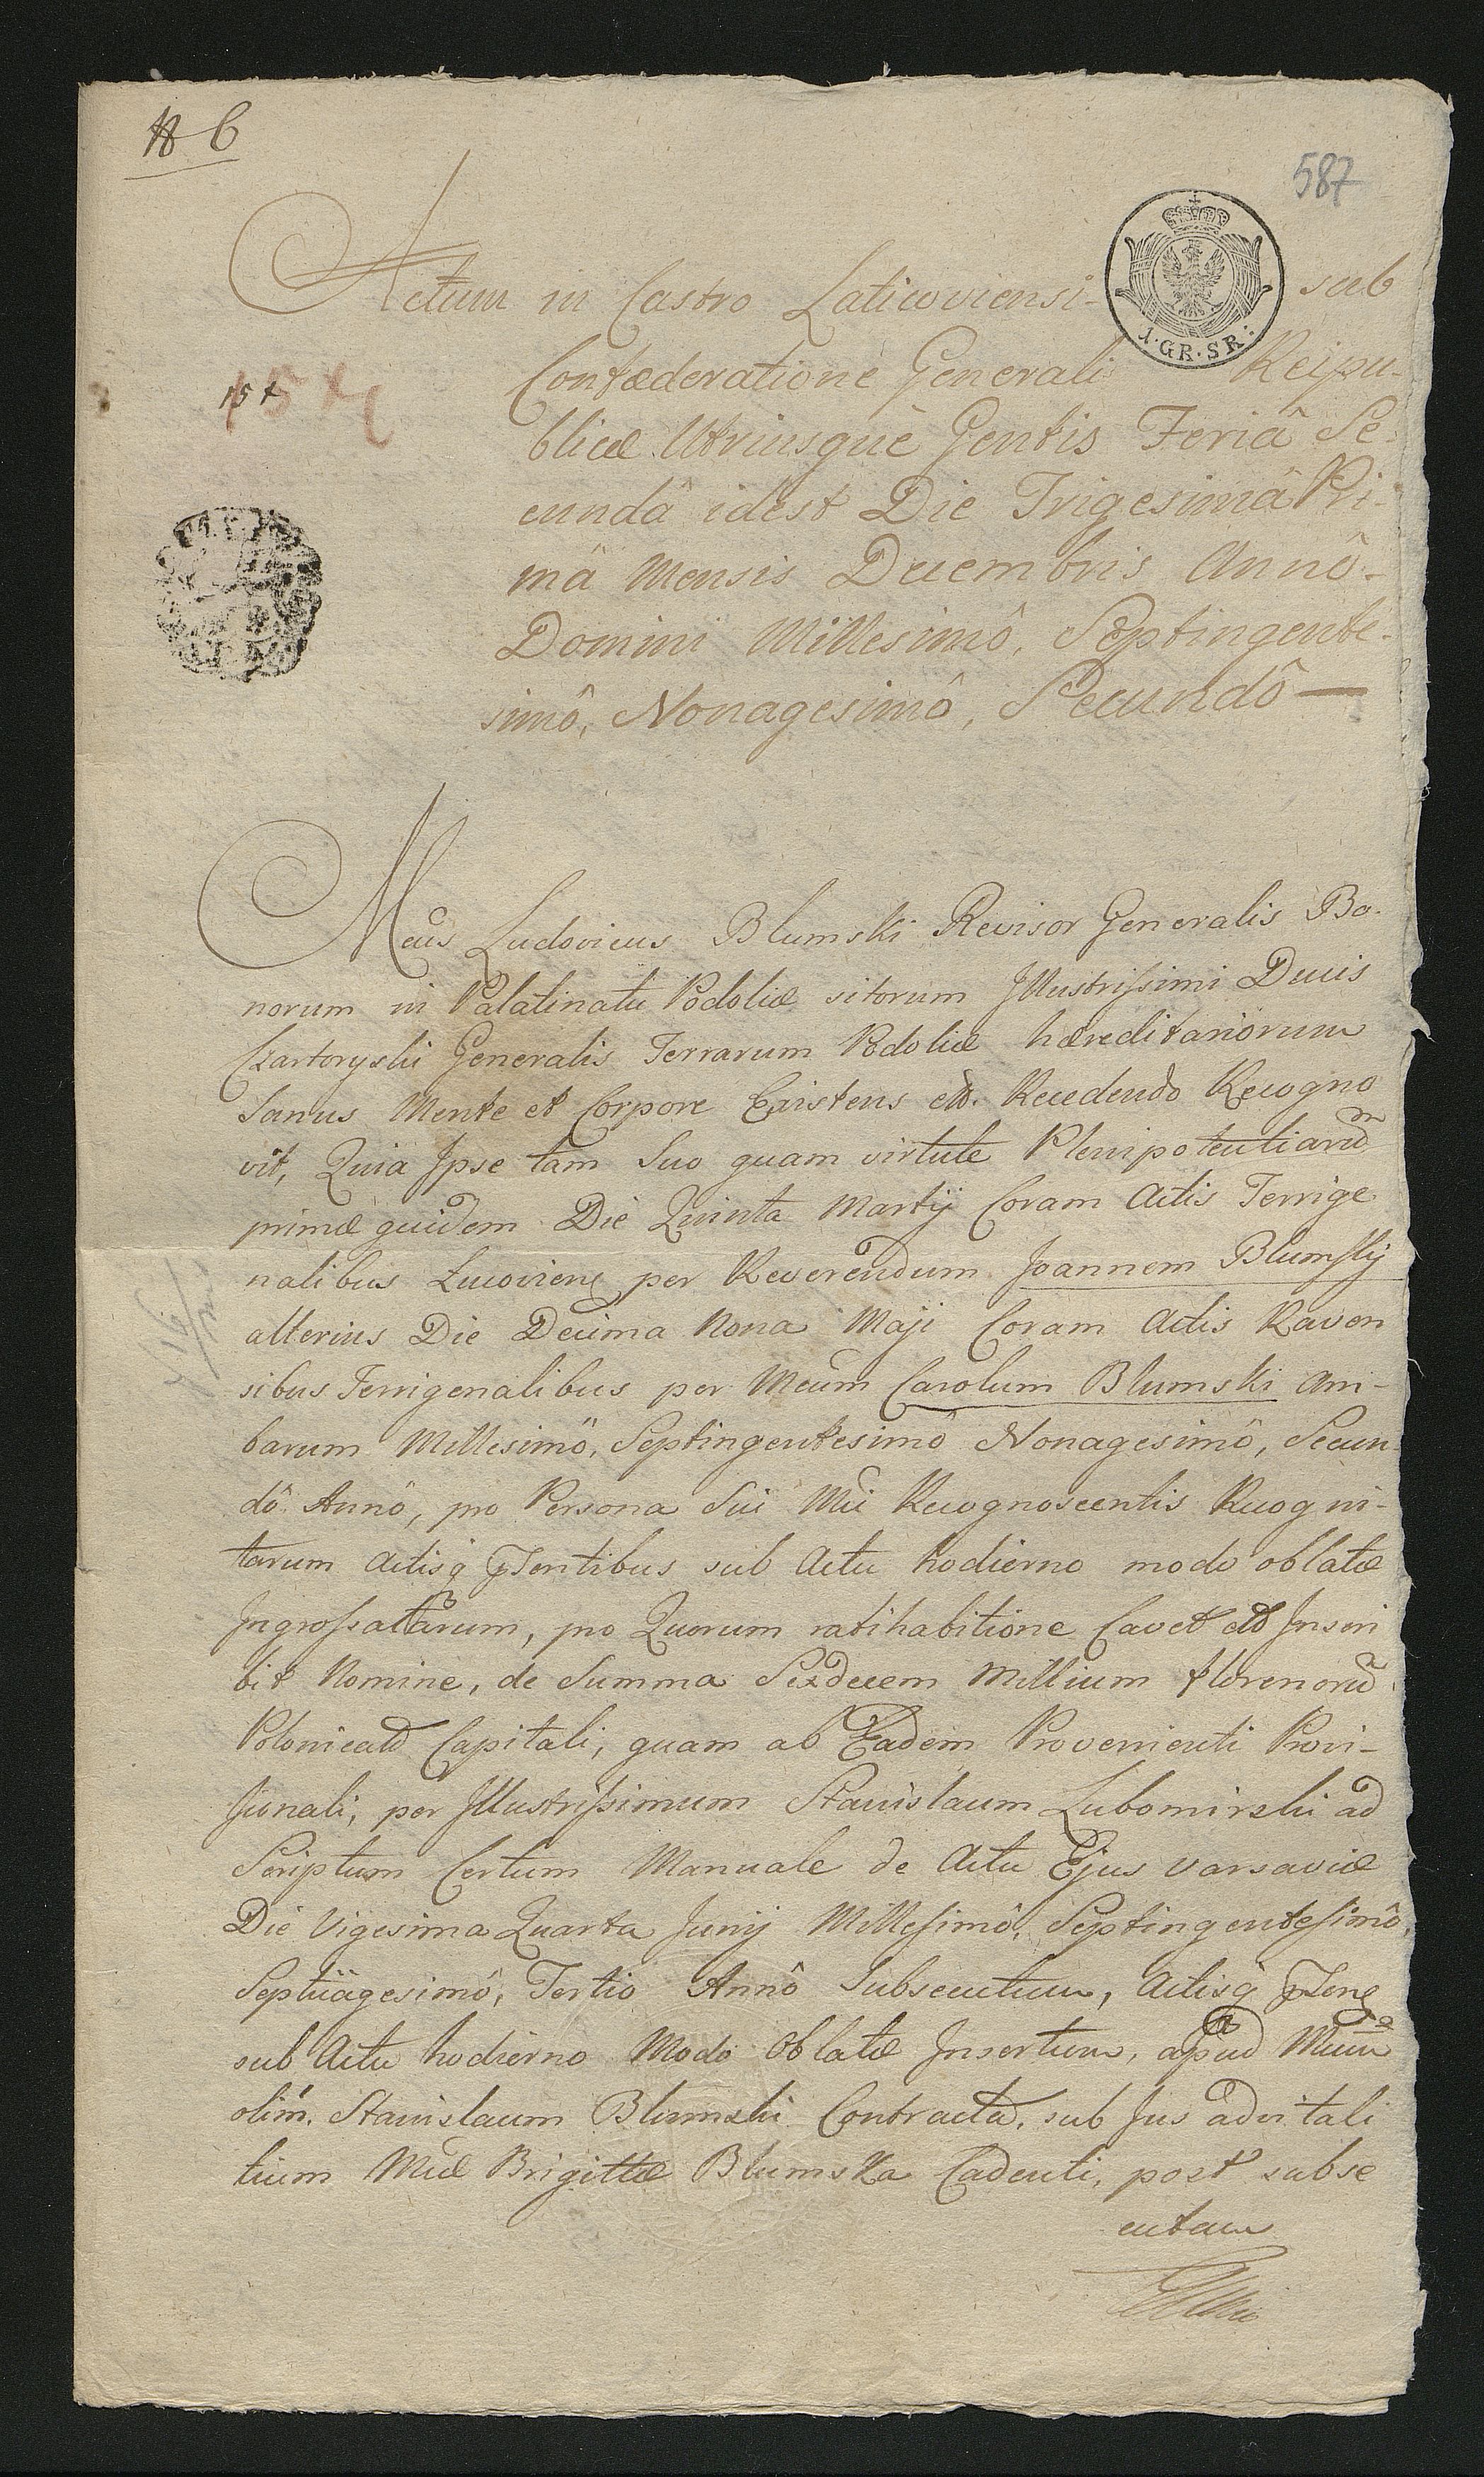 6
587
1·GR·SR:
Actum in Castro Laticoviensi sub
Confæderatione Generali Reipu-
blicæ Utriusquè Gentis Feriâ Se-
cundâ idest Die Trigesimâ Pri-
mâ Mensis Decembris Annô
Domini Millesimô, Septingente-
simô, Nonagesimô, Secundô
15
Mcus Ludovicus Blumski Revisor Generalis Bo-
norum in Palatinatu Podoliæ sitorum Jllustrissimi Ducis
Czartoryski Generalis Terrarum Podoliæ hæreditariorum
Sanus Mente et Corpore Existens etc. Recedendo Recogno
vit, Quia Jpse tam Suo quam virtute Plenipotentiarũ
primæ quidem Die Quinta Martij Coram Actis Terrige
nalibus Lucovien per Reverendum Joannem Blumskij
alterius Die Decima Nona Maji Coram Actis Raven
sibus Terrigenalibus per Mcum Carolum Blumski Am-
barum Millesimô, Septingentesimô Nonagesimô, Secun
dô Annô, pro Persona Sui Mci Recognoscentis Recogni-
tarum Actisq pſentibus sub Actu hodierno modo oblatæ
Jngrossatarum, pro Quorum ratihabitione Cavet et Jnscri
bit Nomine, de Summa Sexdecem Millium florenorũ
Polonicalũ Capitali, quam ab Eadem Provenienti Provi-
sionali, per Jllustrissimum Stanislaum Lubomirski ad
Scriptum Certum Manuale de Actu Ejus Varsaviæ
Die Vigesima Quarta Junij Millesimô, Septingentesimô,
Septuagesimô, Tertio Annô Subsecutum, Actisq pſens
sub Actu hodierno Modo Oblatæ Jnsertum, apud Mcum
olim Stanislaum Blumski Contracta, sub Jus advitali
tium Mcæ Brigittæ Blumska Cadenti, post subse
cutam